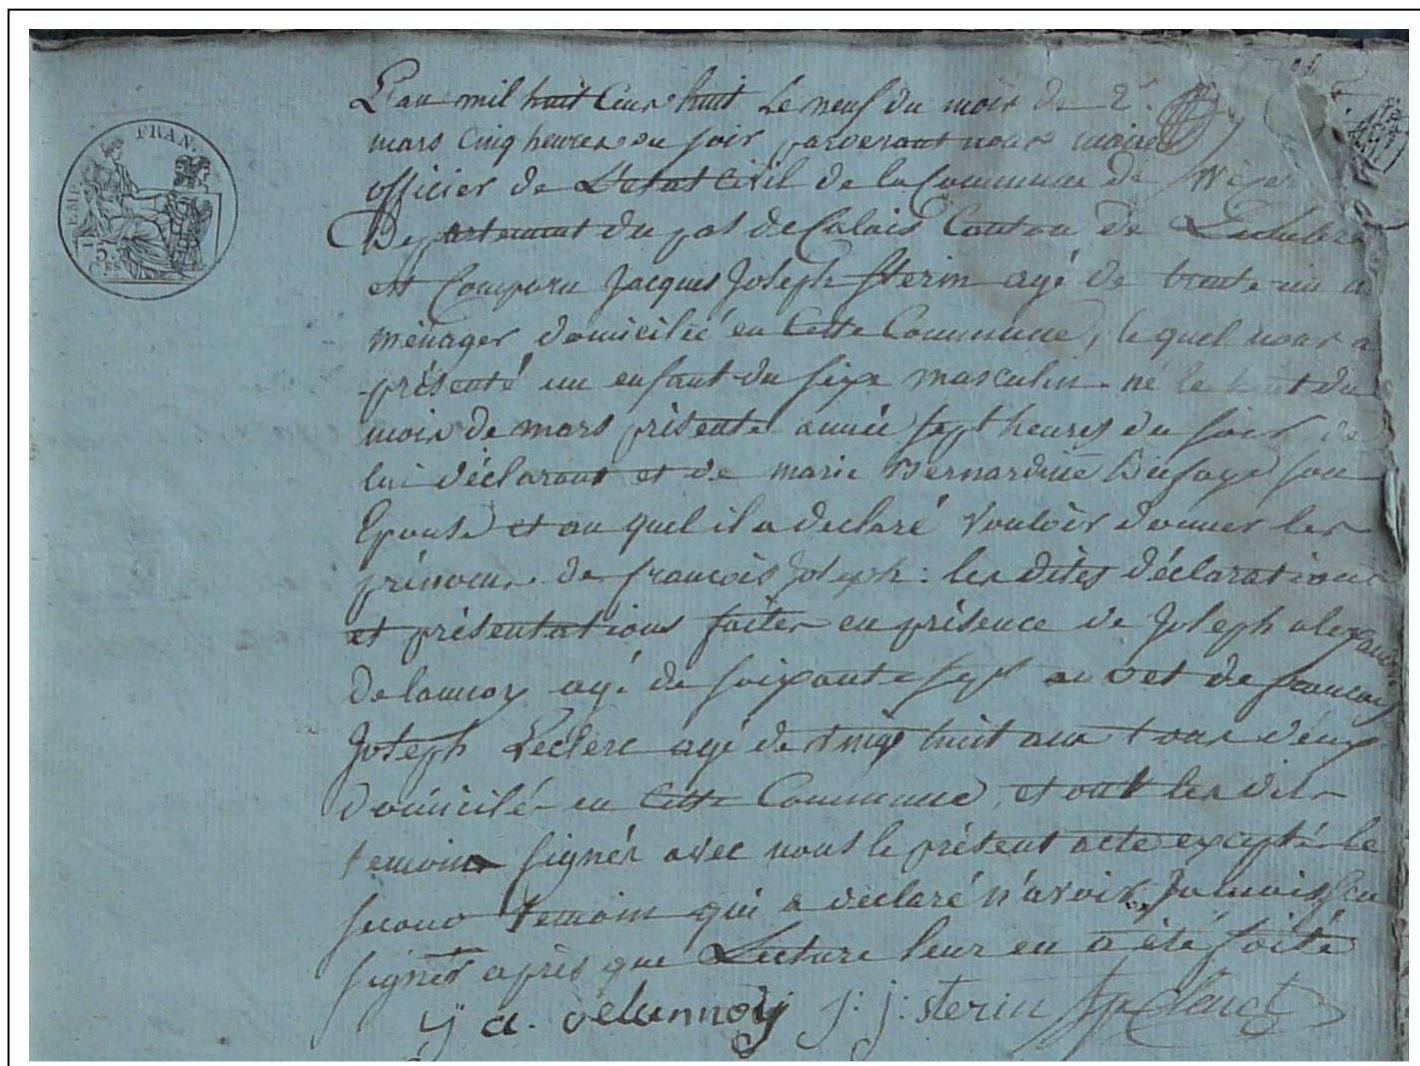 EMP. FRAN.
L'an mil huit cens huit le neuf du mois de
mars cinq heures du soir pardevant nous maire
officier de L'etat civil de la Commune de
Departement du pas de Calais Canton de
est Comparu Jacques Joseph Sterin agé de trente un
ménager domicilié en Cette Commune, lequel nous a
présenté un enfant du sexe masculin né le huit du
mois de mars présente année sept heures du soir de
lui déclarant et de marie Bernardine Dufaye son
Epouse et au quel il a declaré vouloir donner les
prénoms de françois joseph : les dites déclarations
et présentations faites en présence de Joseph alexandre
Delannoy agé de soixante sept ans et de françois
Joseph Leclerc agé de vingt huit ans tous deux
domicilé en Cette Commune, et ont les dits
temoins signés avec nous le présent acte excepté le
second temoin qui a declaré n'avoir Jamais sçu
signer après que Lecture leur en a été faite
j a. delannoy j: j: sterin